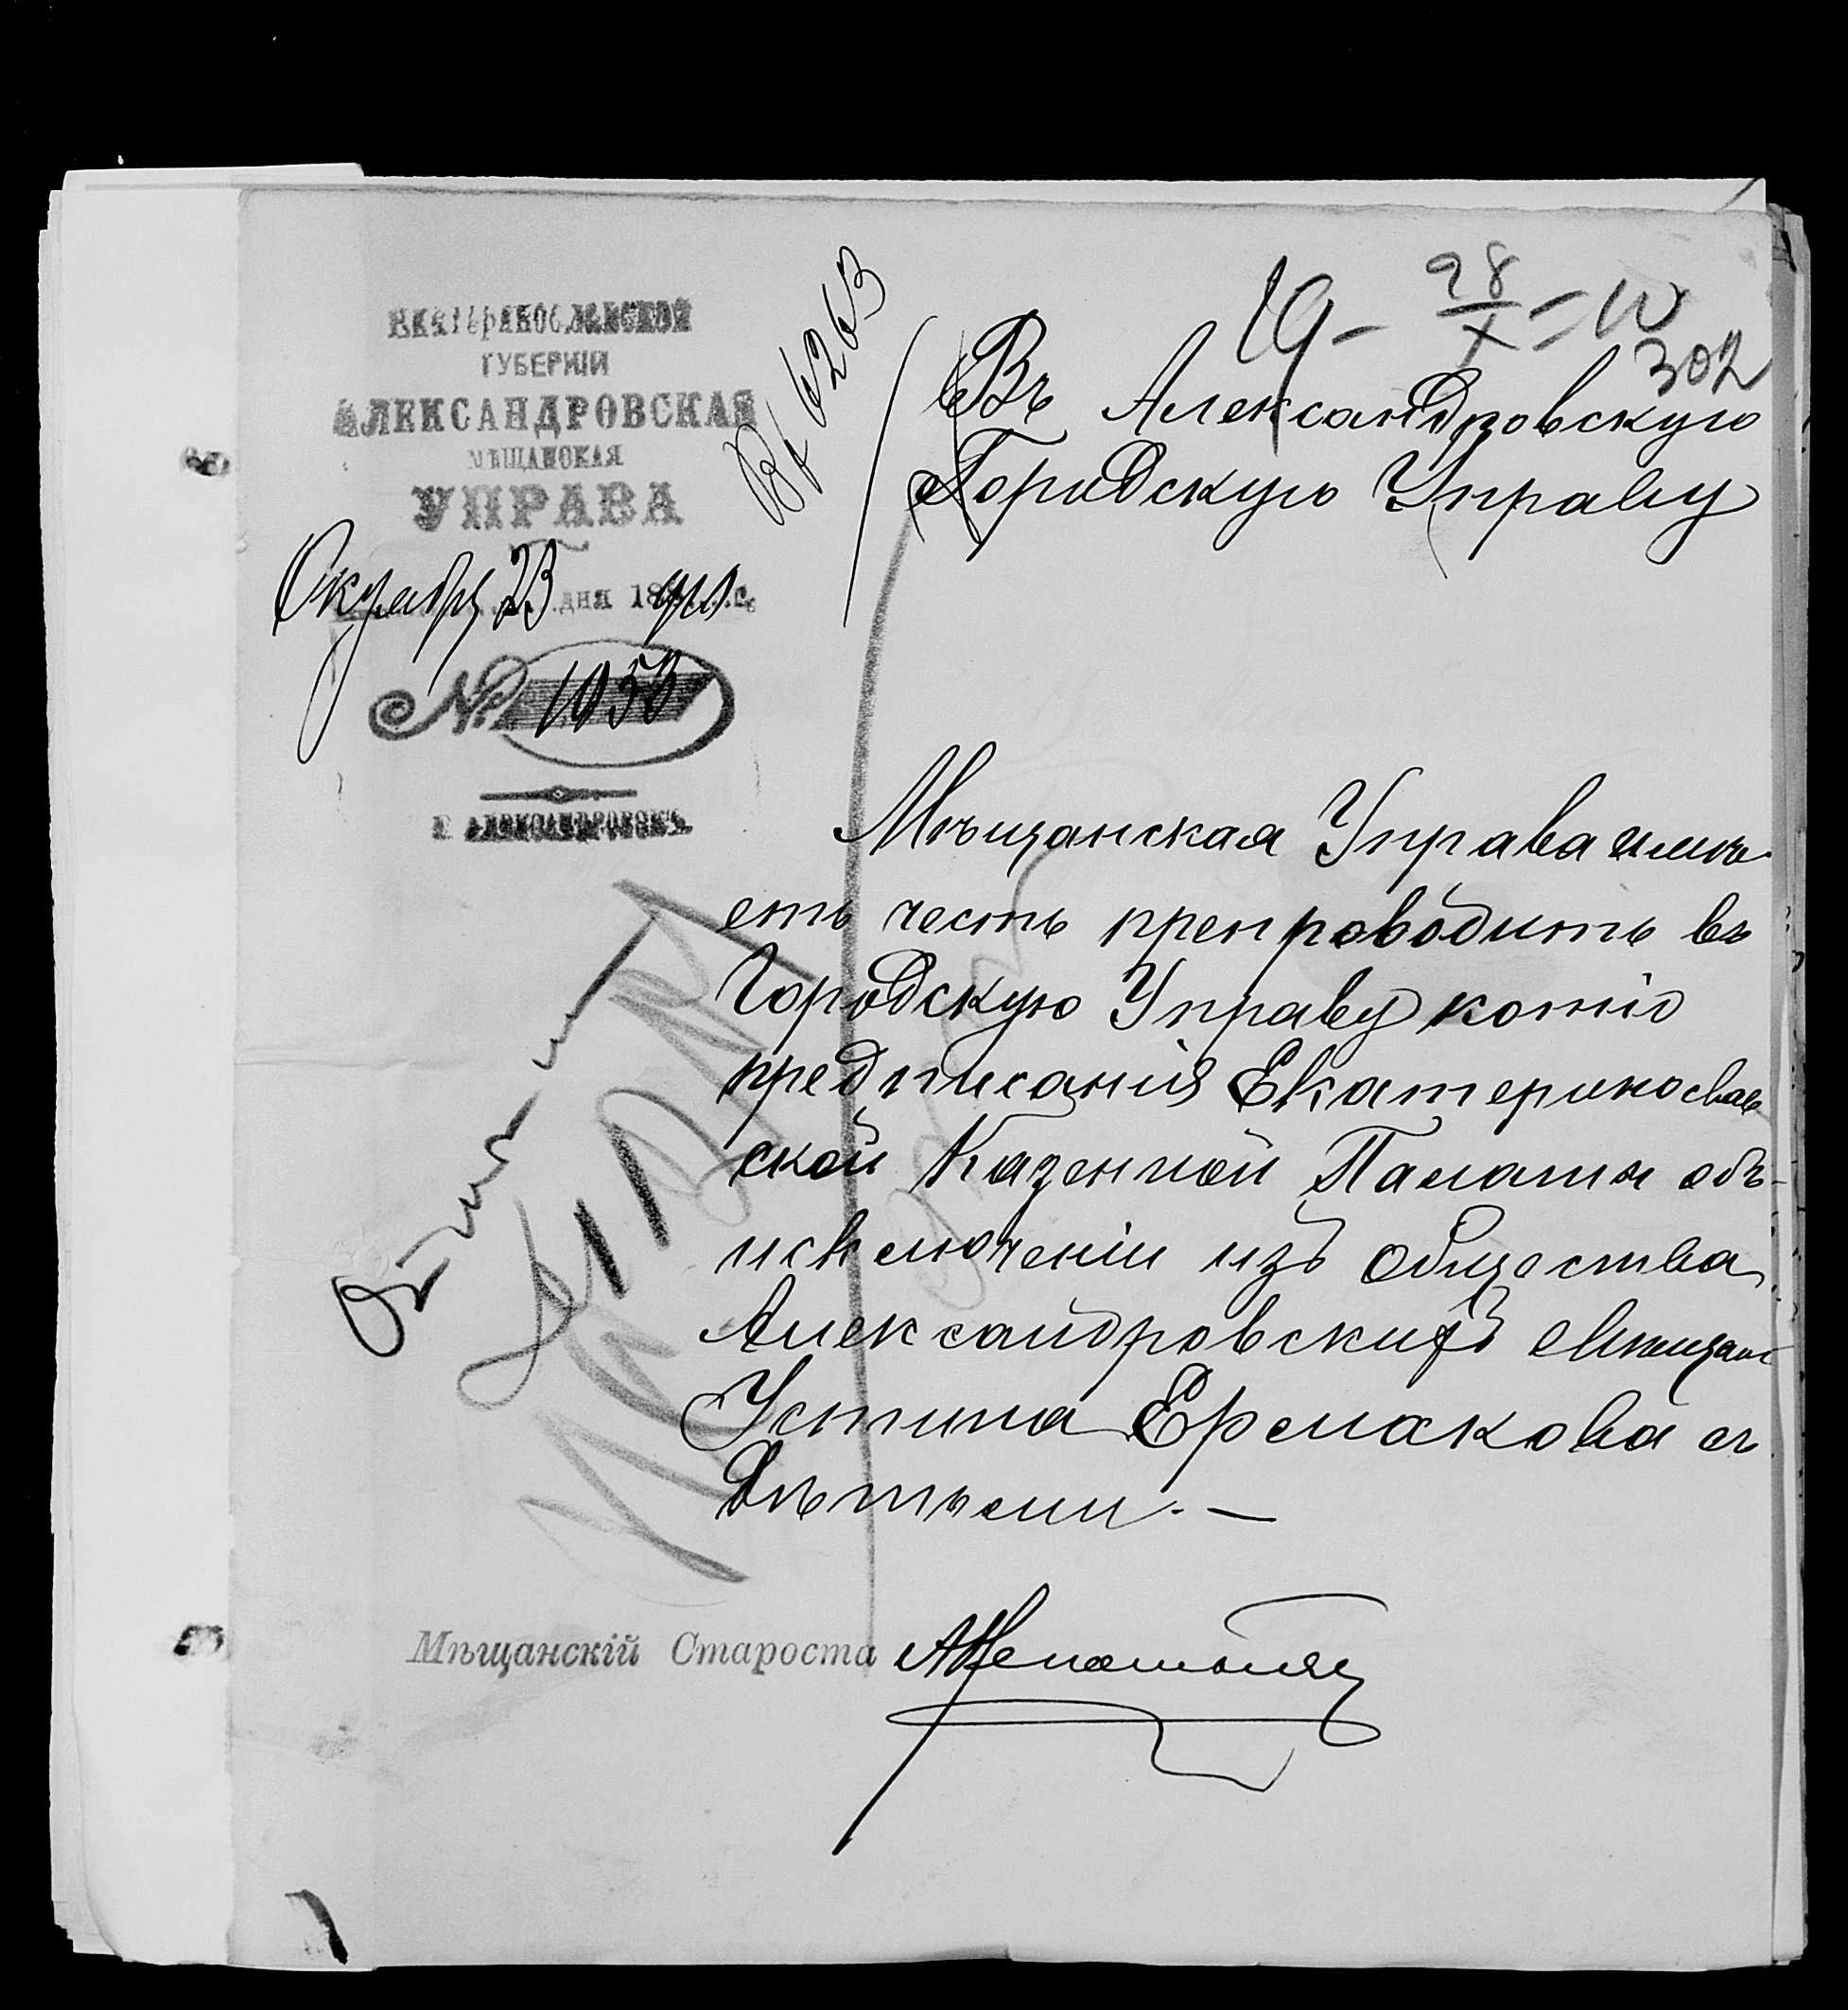 ЕКАТЕРИНОСЛАВСКОЙ
ГУБЕРНІИ
АЛЕКСАНДРОВСКАЯ
МѢЩАНСКАЯ
УПРАВА
Октября 23 дня 18
№ 1053
Г. АЛЕКСАНДРОВСКЪ
6263
19- 28/X = 10
302
Въ Александровскую
Городскую Управу
Мѣщанская Управа имѣ-
етъ честь препроводить въ
Городскую Управу копію
предписанія Екатеринослав
ской Казенной Палаты объ-
исключеніи изъ общества
Александровскихъ Мѣщанъ
Устина Ермакова съ
Дѣтьми. —
Мѣщанскій Староста